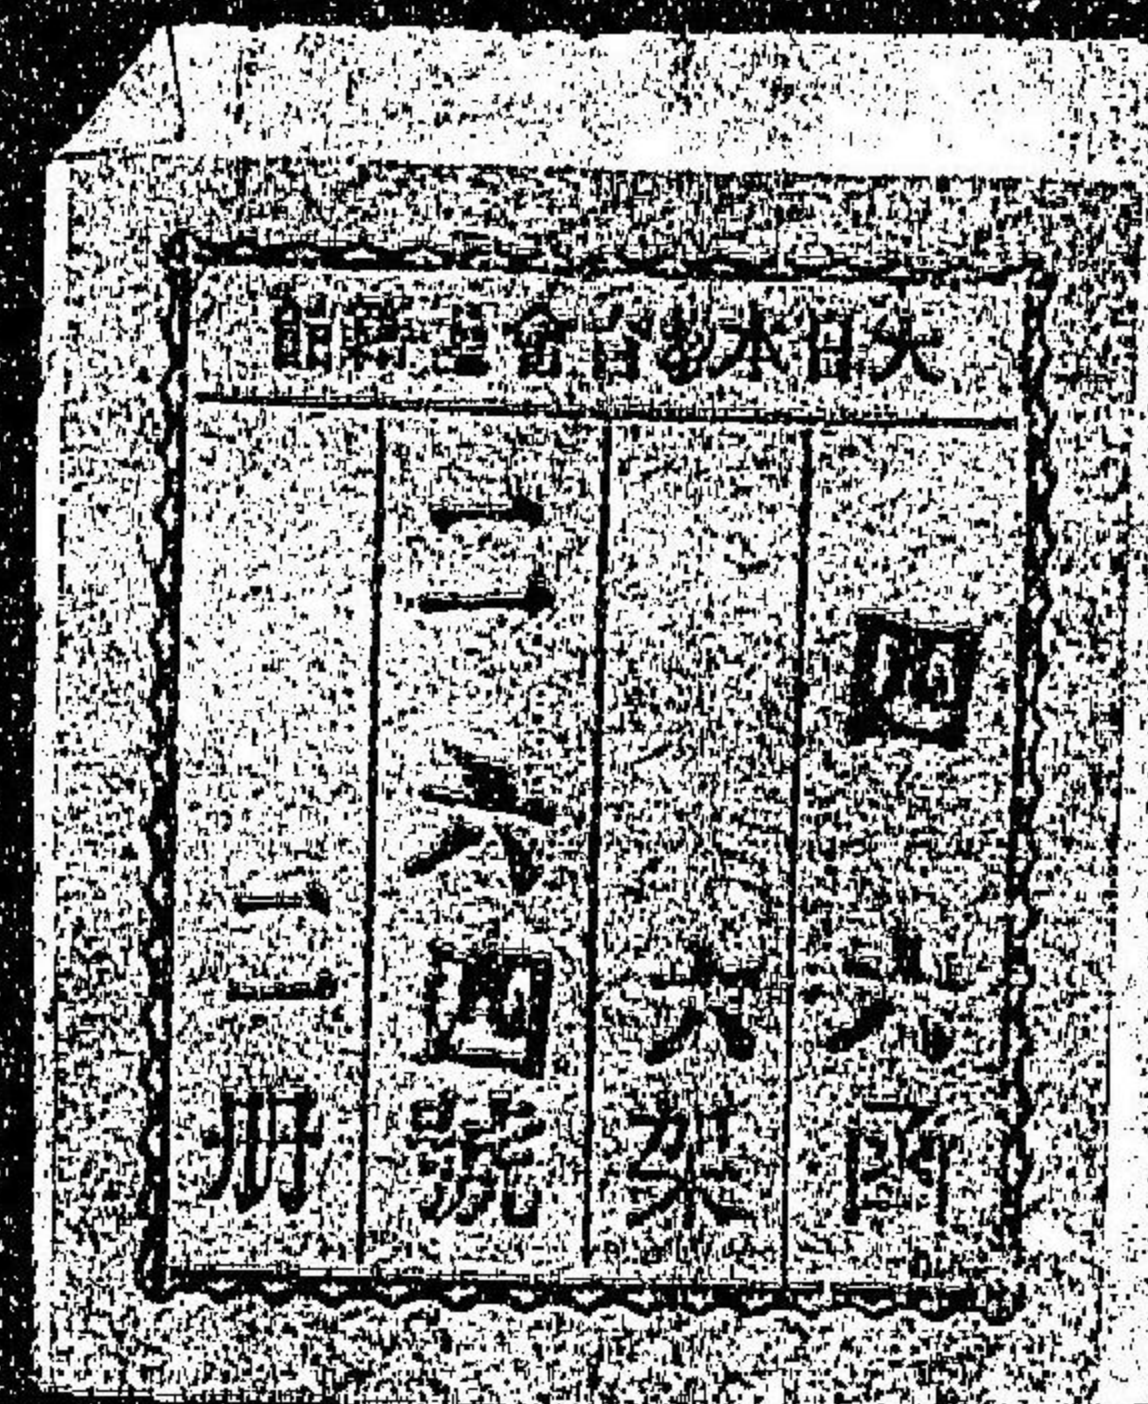 大日本教育會書籍館
四六函
六架
二六四號
二冊